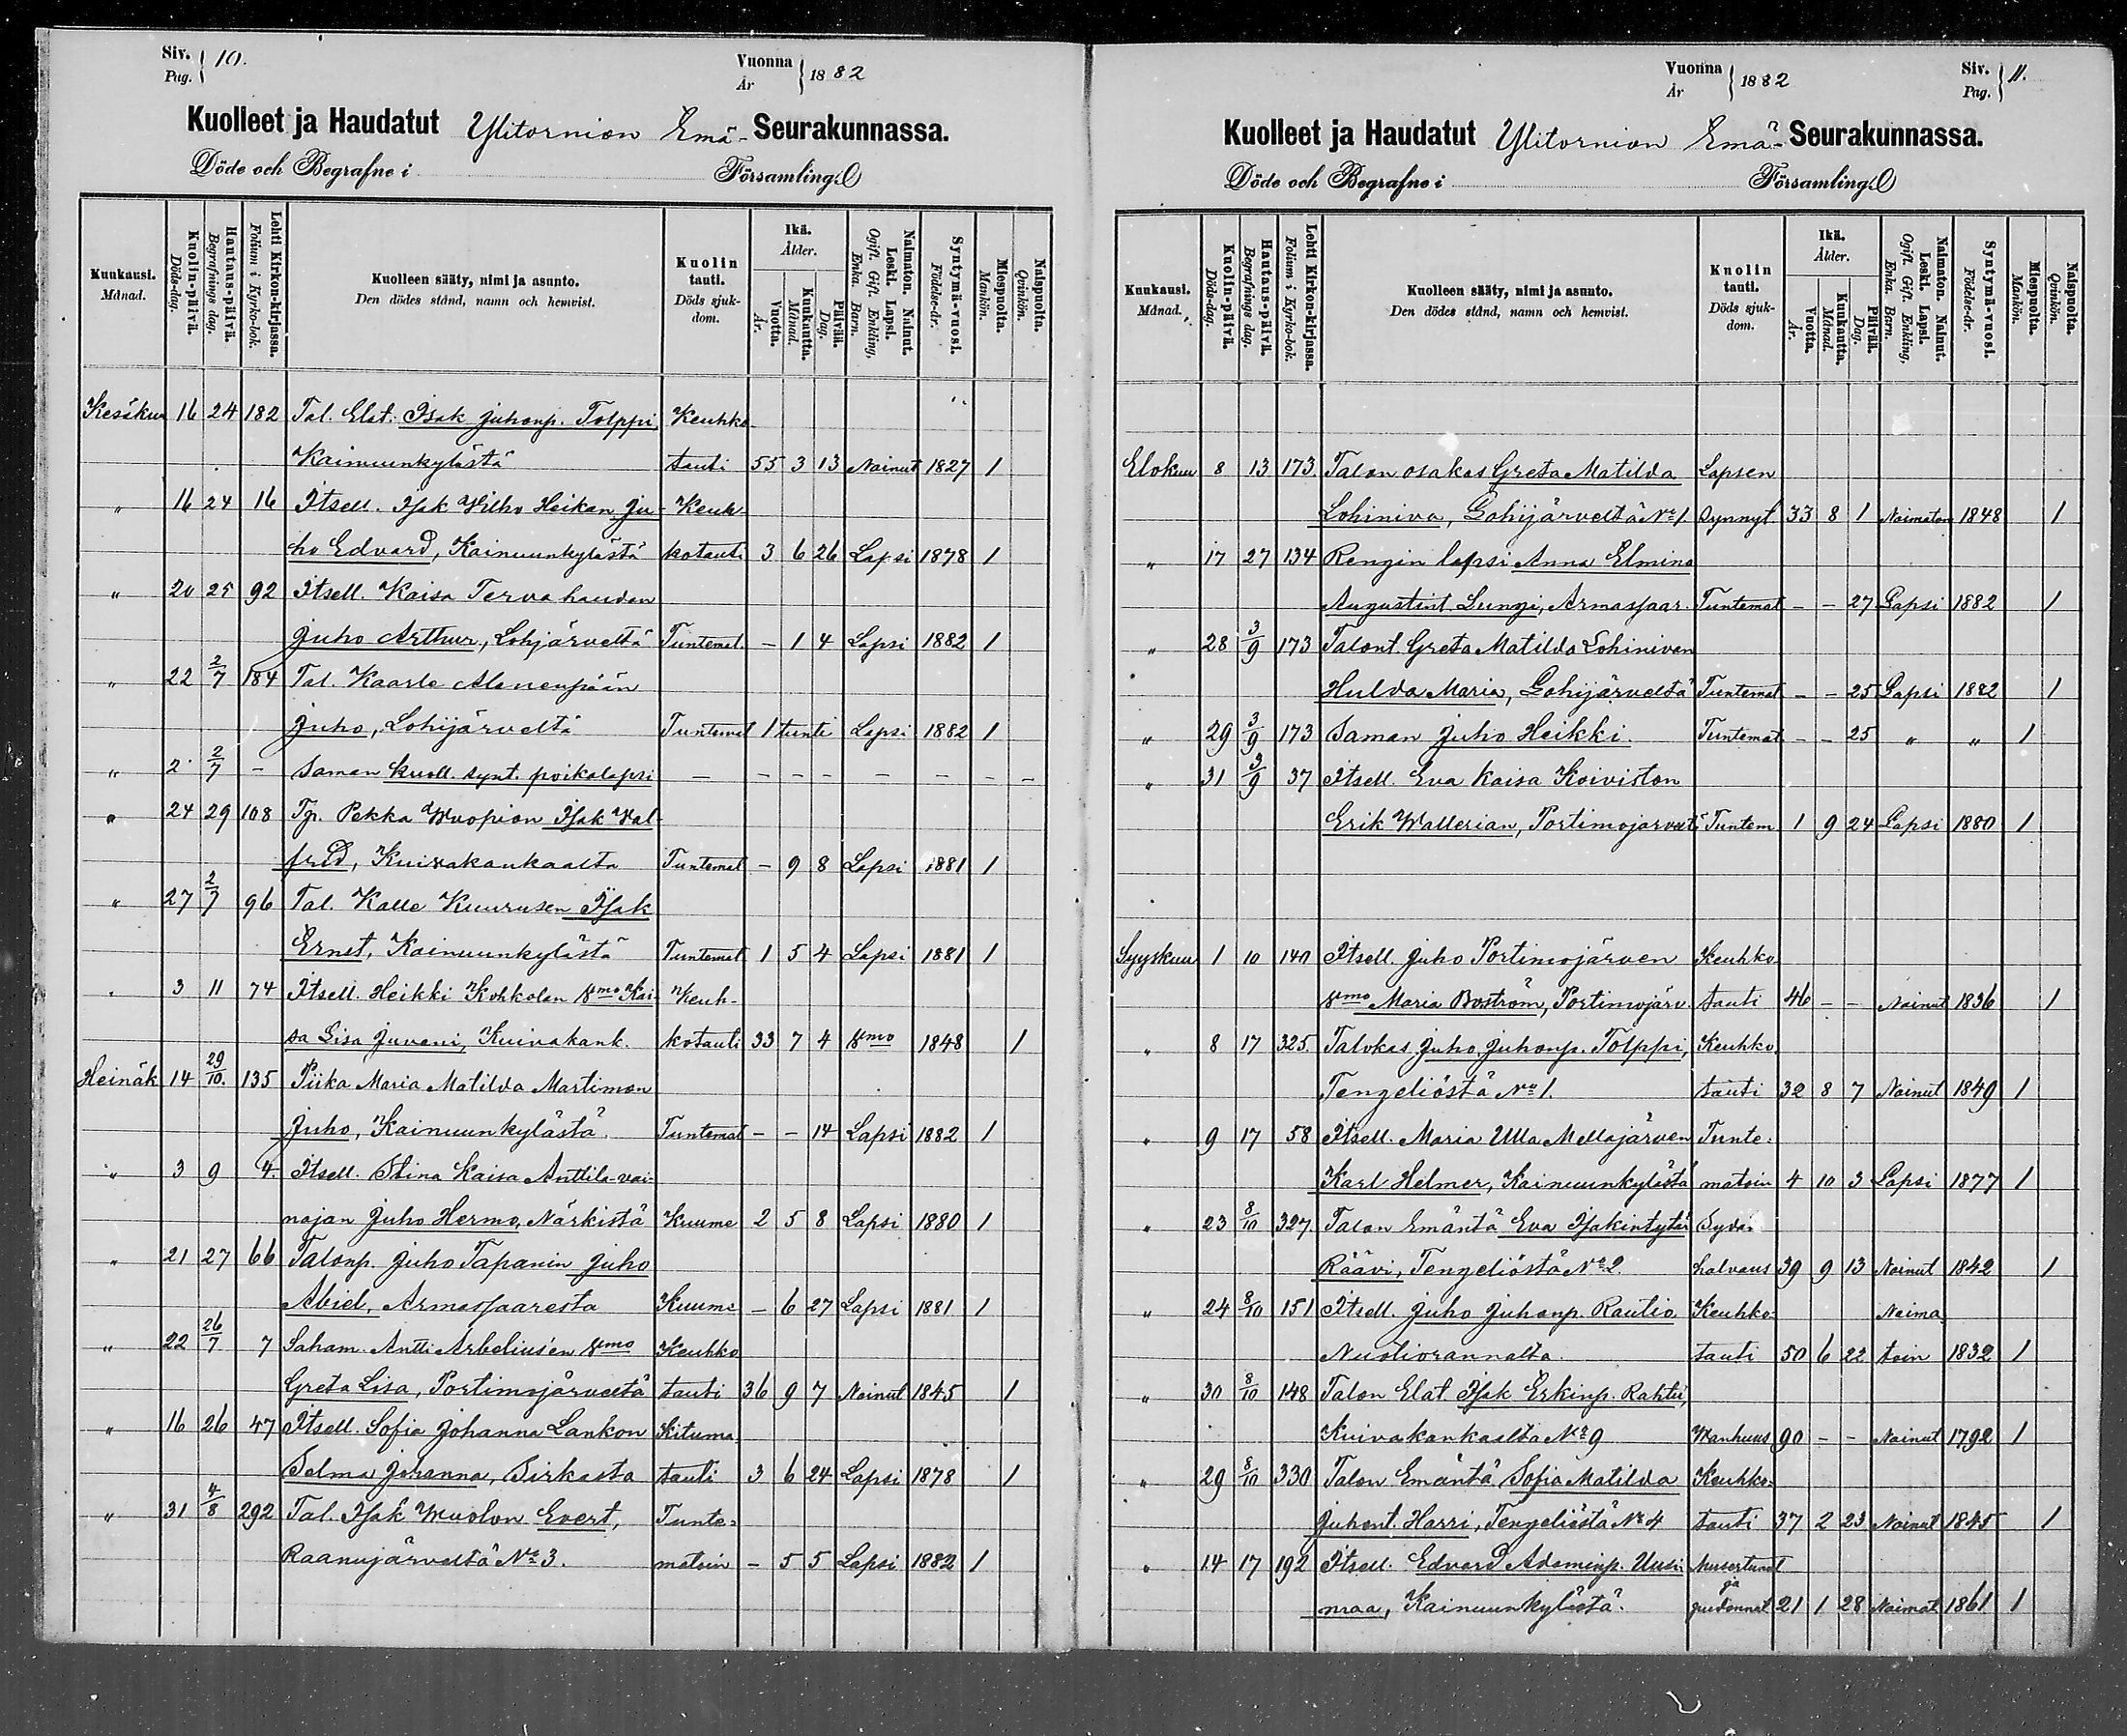 Siv. Pag. 10. Vuonna År 1882
Kuolleet ja Haudatut Ylitornion Emä- Seurakunnassa.
Döde och Begrafne i Församling.
Kuukausi. Månad. Kuolin-päivä. Döds-dag. Hautaus-päivä. Begrafnings dag. Lehti Kirkon-kirjassa. Folium i Kyrko-bok. Kuolleen sääty, nimi ja asunto. Den dödes stånd, namn och hemvist. Kuolin tauti. Döds sjukdom. Ikä. Ålder. Vuotta. År. Kuukautta. Månad. Päivää. Dag. Naimaton. Nainut. Leski. Lapsi. Ogift. Gift. Enkling, Enka. Barn. Syntymä-vuosi. Födelse-år. Miespuolta. Mankön. Naispuolta. Qvinkön.
Kesäkuu 16 24 182 Tal. Elat. Isak Juhonp. Tolppi, Keuhko
Kainuunkylästä tauti 55 3 13 Nainut 1827 1
" 16 24 16 Itsell. Isak Vilho Heikan Ju- Keuh-
ho Edvard, Kainuunkylästä kotauti 3 6 26 Lapsi 1878 1
" 20 25 92 Itsell. Kaisa Tervahaudan
Juho Arthur, Lohjärveltä Tuntemat. - 1 4 Lapsi 1882 1
" 22 2/7 184 Tal. Kaarlo Alaneupään
Juho, Lohijärveltä Tuntemat 1 tunti Lapsi 1882 1
" 2 2/7 - Saman kuoll. synt. poikalapsi - - - - - - - -
" 24 29 108 Tp. Pekka Wuopion Isak Wal-
frid, Kuivakankaalta Tuntemat - 9 8 Lapsi 1881 1
" 27 2/7 96 Tal. Kalle Kuurusen Isak
Ernst, Kainuunkylästä Tuntemat 1 5 4 Lapsi 1881 1
" 3 11 74 Itsell. Heikki Kohkolan vmo Kai- Keuh-
sa Lisa Juvani, Kuivakank. kotauti 33 7 4 vmo 1848 1
Heinäk 14 29/10. 135 Piika Maria Matilda Martimon
Juho, Kainuunkylästä. Tuntemat - - 14 Lapsi 1882 1
" 3 9 4. Itsell. Stina Kaisa Anttila-vai-
najan Juho Hermo, Närkistä Kuume 2 5 8 Lapsi 1880 1
" 21 27 66 Talonp. Juho Tapanin Juho
Abiel, Armassaaresta Kuume - 6 27 Lapsi 1881 1
" 22 26/7 7 Saham. Antti Arbelius'en vmo Keuhko
Greta Lisa, Portimojärveltä tauti 36 9 7 Nainut 1845 1
" 16 26 47 Itsell. Sofia Johanna Lankon Kituma
Selma Johanna, Sirkasta tauti 3 6 24 Lapsi 1878 1
" 31 4/8 292 Tal. Isak Wuolon Evert, Tunte-
Raanujärveltä No 3. matoin - 5 5 Lapsi 1882 1
Vuonna År 1882 Siv. Pag. 11.
Kuolleet ja Haudatut Ylitornion Emä- Seurakunnassa.
Döde och Begrafne i Församling.
Kuukausi. Månad. Kuolin-päivä. Döds-dag. Hautaus-päivä. Begrafnings dag. Lehti Kirkon-kirjassa. Folium i Kyrko-bok. Kuolleen sääty, nimi ja asunto. Den dödes stånd, namn och hemvist. Kuolin tauti. Döds sjukdom. Ikä. Ålder. Vuotta. År. Kuukautta. Månad. Päivää. Dag. Naimaton. Nainut. Leski. Lapsi. Ogift. Gift. Enkling, Enka. Barn. Syntymä-vuosi. Födelse-år. Miespuolta. Mankön. Naispuolta. Qvinkön.
Elokuu 8 13 173. Talon osakas Greta Matilda Lapsen
Lohiniva, Lohijärveltä No 1. synnyt 33 8 1 Naimaton 1848 1
" 17 27 134 Rengin lapsi Anna Elmina
Augustint. Lungi, Armassaar. Tuntemat - - 27 Lapsi 1882 1
" 28 3/9 173 Talont. Greta Matilda Lohinivan
Hulda Maria, Lohijärveltä Tuntemat - - 25 Lapsi 1882 1
" 29 3/9 173 Saman Juho Heikki. Tuntemat. - - 25 " " 1
" 31 3/9 37 Itsell. Eva Kaisa Koiviston
Erik Wallerian, Portimojärvelt. Tuntem 1 9 24 Lapsi 1880 1
Syyskuu 1 10 140 Itsell. Juho Portimojärven Keuhko
vmo Maria Boström, Portimojärv. tauti 46 - - Nainut 1836 1
" 8 17 325. Talokas Juho Juhonp. Tolppi, Keuhko
Tengeliöstä No 1. tauti 32 8 7 Nainut 1849 1
" 9 17 58 Itsell. Maria Ulla Mellajärven Tunte-
Karl Helmer, Kainuunkylästä matoin 4 10 3 Lapsi 1877 1
" 23 8/10 327. Talon Emäntä Eva Isakintytär Sydän
Räävi, Tengeliöstä No 2. halvaus 39 9 13 Nainut 1842 1
" 24 8/10 151 Itsell. Juho Juhonp. Rautio, Keuhko- Naima
Nuotiorannalta. tauti 50 6 22 toin 1832 1
" 30 8/10 148 Talon Elat. Isak Erkinp. Rahtu,
Kuivakankaalta No 9 Wanhuus 90 - - Nainut 1792 1
" 29 8/10 330 Talon Emäntä Sofia Matilda Keuhko-
Juhont. Harri, Tengeliöstä No 4 tauti 37 2 23 Nainut 1845 1
" 14 17 192 Itsell. Edvard Adaminp. Uusi- Musertunut
maa, Kainuunkylästä. ja pudonnut 21 1 28 Naimat 1861 1